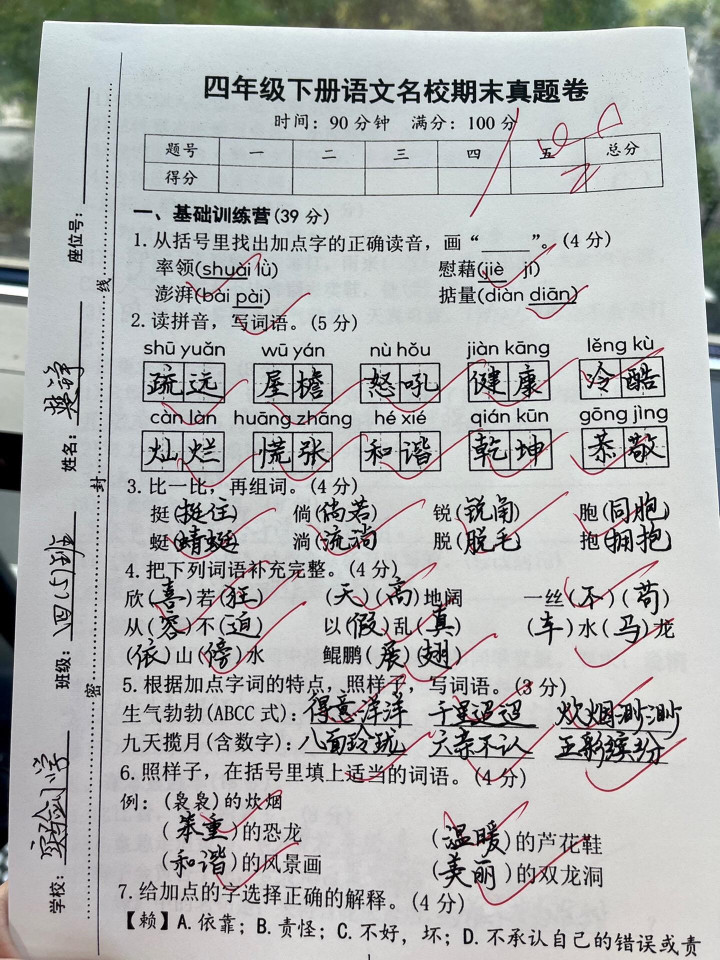 四年级下册语文名校期末真题卷
时间：90分钟 满分：100分
题号 一 二 三 四 五 总分
得分
一、基础训练营(39分)
1.从括号里找出加点字的正确读音，画“____”。(4分)
率领(shuài lǜ) 慰藉(jiè jí)
澎湃(bái pài) 掂量(diàn diān)
2.读拼音，写词语。(5分)
shū yuǎn wū yán nù hǒu jiàn kāng lěng kù
疏远 屋檐 怒吼 健康 冷酷
càn làn huāng zhāng hé xié qián kūn gōng jìng
灿烂 慌张 和谐 乾坤 恭敬
3.比一比，再组词。(4分)
挺(挺住) 倘(倘若) 锐(锐角) 胞(同胞)
蜓(蜻蜓) 淌(流淌) 脱(脱毛) 抱(拥抱)
4.把下列词语补充完整。(4分)
欣(喜)若(狂) (天)(高)地阔 一丝(不)(苟)
从(容)不(迫) 以(假)乱(真) (车)水(马)龙
(依)山(傍)水 鲲鹏(展)(翅)
5.根据加点字词的特点，照样子，写词语。(3分)
生气勃勃(ABCC式)：得意洋洋 千里迢迢 炊烟渺渺
九天揽月(含数字)：八面玲珑 六亲不认 五彩缤纷
6.照样子，在括号里填上适当的词语。(4分)
例：(袅袅)的炊烟
(笨重)的恐龙 (温暖)的芦花鞋
(和谐)的风景画 (美丽)的双龙洞
7.给加点的字选择正确的解释。(4分)
【赖】A.依靠；B.责怪；C.不好，坏；D.不承认自己的错误或责
座位号：
姓名：
班级：四(5)班
学校：实验小学
密 封 线